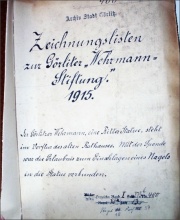 Archiv Stadt Görlitz
Zeichnungslisten
zur Görlitzer "Wehrmann-
Stiftung".
1915.
Der Görlitzer Wehrmann, eine Ritter Statue, steht
im Vorflur des alten Rathauses. Mit der Spende
war die Erlaubnis zum Einschlagen eines Nagels
in die Statue verbunden.